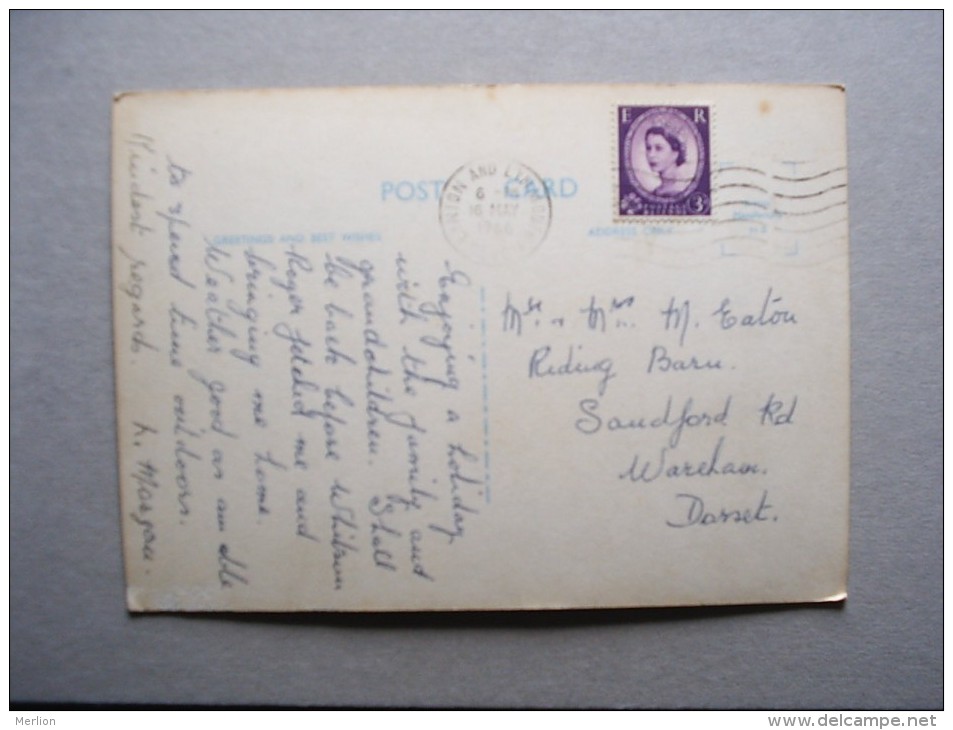 POST CARD
GREETINGS AND BEST WISHES
ADDRESS ONLY
E R
3D
LYNTON AND LYNMOUTH
6
16 MAY
1966
Enjoying a holiday
with the family and
grandchildren. Shall
be back before Whitsun
Roger fetched me and
bringing me home.
Weather good am able
to spend time outdoors.
Kindest regards.
Mr. & Mrs. M. Eaton
Riding Barn.
Sandford Rd
Wareham.
Dorset.
Merlion
http://www.delcampe.net